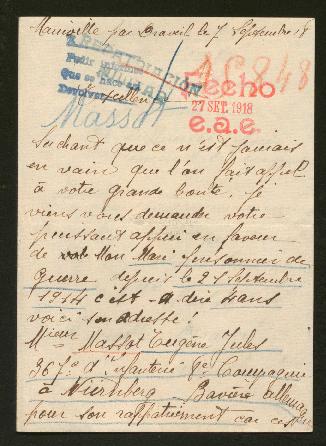 Mainville par Draveil le 7 Septembre 18
REPATRIACIÓN
MILITAR
Pedir informes
Que se hace
Devolver
46848
Fecho
27 SET. 1918
e.a.e.
Massot
Sachant que ce n'est jamais
en vain que l'on fait appel
à votre grande bonté. je
viens vous demander votre
puissant appui en faveur
de Mon Mari prisonnier de
guerre depuis le 21 Septembre
1914 c'est-a dire 4 ans
voici son adresse!
Massot Eugène Jules
367e d'Infanterie Compagnie
à Nürnberg Bavière Allemagne
pour son rapatriement car